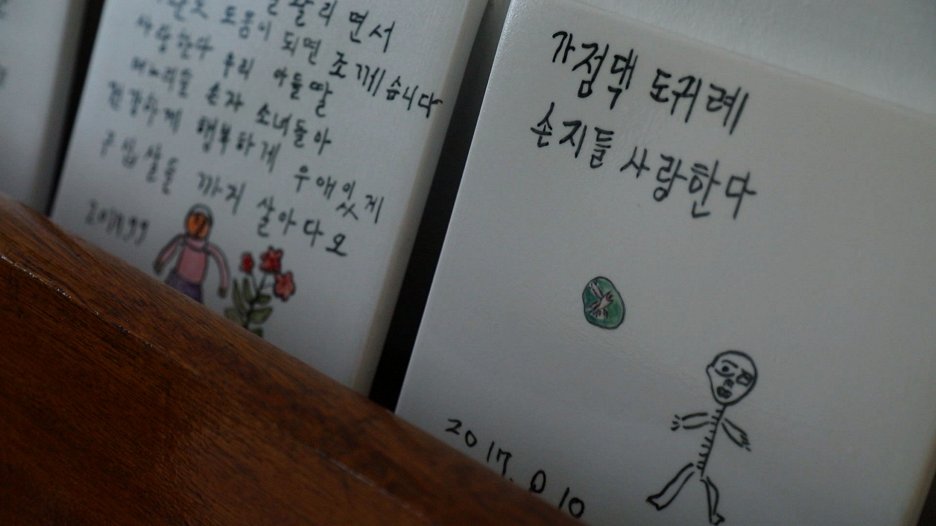 면서
도움이 되면 조께습니다
사랑한다 우리 아들딸
며느리들 손자 소녀들아
건강하게 행복하게 우애잇게
구십살을 까지 살아다오
가점댁 도귀례
손지들 사랑한다
2017.